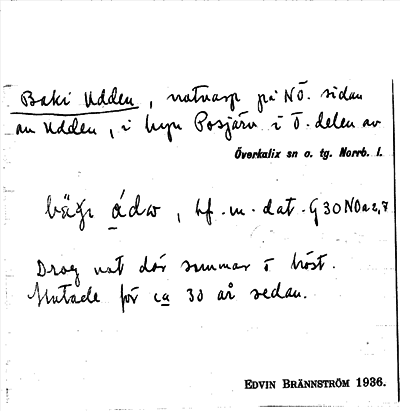 Baki Udden, notvarp på NÖ. sidan
av Udden, i byn Posjärv i Ö. delen av
Överkalix sn o. tg. Norrb. l.
ádω, bf. m. dat. G 30 NO a 2,7
Drog not där sommar o höst.
Slutade för ca 30 år sedan.
EDVIN BRÄNNSTRÖM 1936.